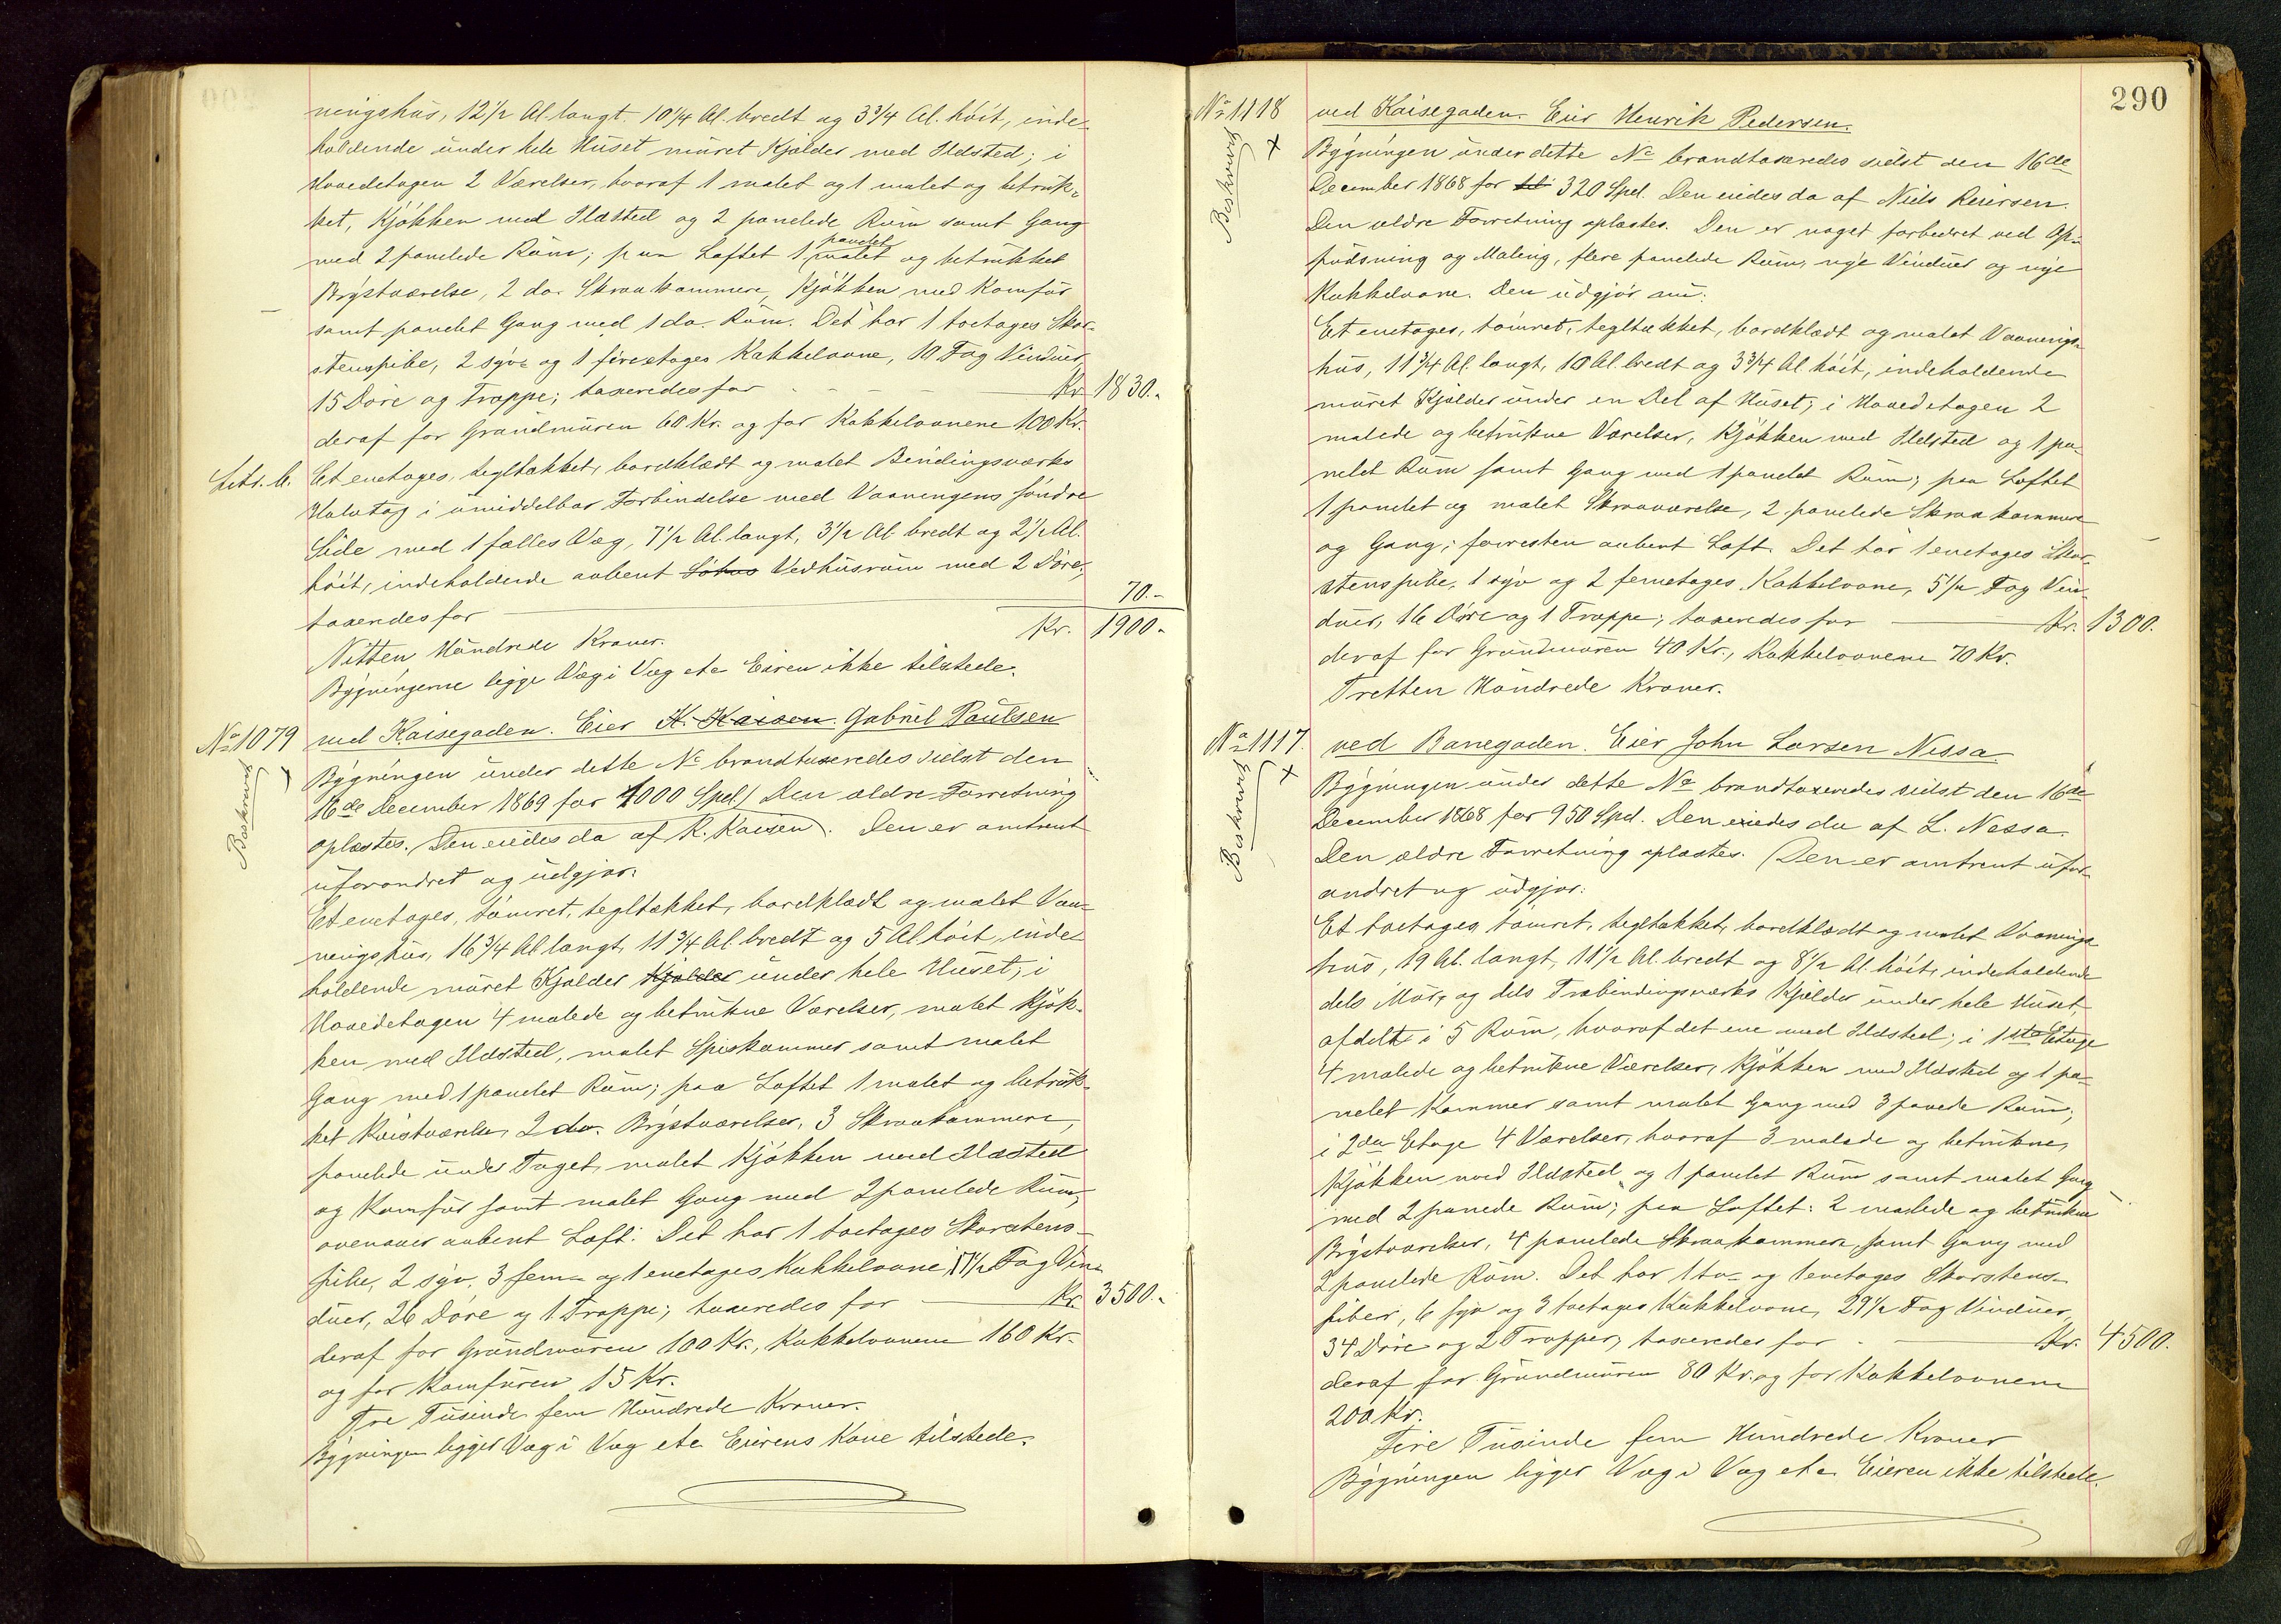 ningshus, 12 1/2 Al. langt. 10 1/4 Al. bredt og 3 3/4 Al. höit, inde-
holdende under hele Huset muret Kjælder med Ildsted; i
Hovedetagen 2 Værelser, hvoraf 1 malet og 1 malet og betruk-
ket, Kjökken med Ildsted og 2 panelede Rum samt Gang
med 2 panelede Rum; paa Loftet 1 panelet malet og betrukket
Brystværelse, 2 do. Skraakammere, Kjökken med Komfur
samt panelet Gang med 1 do. Rum. Det har 1 toetages Skor-
stenspibe, 2 syv- og 1 fireetages Kakkelovne, 10 Fag Vinduer,
15 Döre og Trappe; taxeredes for Kr. 1830.-
deraf for Grundmuren 60 Kr. og for Kakkelovnene 100 Kr.
Litr. b. Et enetages, tegltækket, bordklædt og malet Bindingsværks
Halvtag i umiddelbar Forbindelse med Vaaningens söndre
Side med 1 fælles Væg, 7 1/2 Al. langt, 3 1/2 Al. bredt og 2 1/2 Al.
höit, indeholdende aabent Vedhusrum med 2 Döre;
taxeredes for 70.-
Kr. 1900.-
Nitten Hundrede Kroner.
Bygningerne ligge Væg i Væg etc. Eieren ikke tilstede.
No 1079 ved Kaisegaden. Eier K. Kaisen. Gabriel Paulsen
Beskrevet
Bygningen under dette No brandtaxeredes sidst den
16de December 1869 for 1000 Spd.) Den ældre Forretning
oplæstes. Den eiedes da af K. Kaisen). Den er omtrent
uforandret og udgjör:
Et enetages, tömret, tegltækket, bordklædt og malet Vaa-
ningshus, 16 3/4 Al. langt, 11 3/4 Al. bredt og 5 Al. höit, inde-
holdende muret Kjælder Kjælder under hele Huset; i
Hovedetagen 4 malede og betrukne Værelser, malet Kjök-
ken med Ildsted, malet Spiskammer samt malet
Gang med 1 panelet Rum; paa Loftet 1 malet og betruk-
ket Kvistværelse, 2 do. Brystværelser, 3 Skraakammere,
panelede under Taget, malet Kjökken med Ildsted
og Komfur samt malet Gang med 2 panelede Rum;
ovenover aabent Loft. Det har 1 toetages Skorstens-
pibe, 2 syv, 3 fem- og 1 enetages Kakkelovne, 17 1/2 Fag Vin-
duer, 26 Döre og 1 Trappe; taxeredes for Kr. 3500.-
deraf for Grundmuren 100 Kr., Kakkelovnene 160 Kr.
og for Komfuren 15 Kr.
Tre Tusinde fem Hundrede Kroner.
Bygningen ligger Væg i Væg etc. Eierens Kone tilstede.
290
No 1118 ved Kaisegaden. Eier Henrik Pedersen.
Beskrevet
Bygningen under dette No brandtaxeredes sidst den 16de
December 1868 for 320 Spd. Den eiedes da af Niels Reiersen.
Den ældre Forretning oplæstes. Den er noget forbedret ved Op-
pudsning og Maling, flere panelede Rum, nye Vinduer og nye
Kakkelovne. Den udgjör nu:
Et enetages, tömret, tegltækket, bordklædt og malet Vaanings-
hus, 11 3/4 Al. langt, 10 Al. bredt og 3 3/4 Al. höit, indeholdende
muret Kjælder under en Del af Huset; i Hovedetagen 2
malede og betrukne Værelser, Kjökken med Ildsted og 1 pa-
nelet Rum samt Gang med 1 panelet Rum; paa Loftet
1 panelet og malet Skraaværelse, 2 panelede Skraakammere
og Gang; forresten aabent Loft. Det har 1 enetages Skor-
stenspibe, 1 syv og 2 femetages Kakkelovne, 5 1/2 Fag Vin-
duer, 16 Döre og 1 Trappe; taxeredes for Kr. 1300.
deraf for Grundmuren 40 Kr., Kakkelovnene 70 Kr.
Tretten Hundrede Kroner.
No 1117. ved Banegaden. Eier John Larsen Nessa
Beskrevet
Bygningen under dette No brandtaxeredes sidst den 16de
December 1868 for 950 Spd. Den eiedes da af L. Nessa.
Den ældre Forretning oplæstes. (Den er omtrent ufor-
andret og udgjör:
Et toetages, tömret, tegltækket, bordklædt og malet Vaanings-
hus, 19 Al. langt, 11 1/2 Al. bredt og 8 1/2 Al. höit, indeholdende
dels Mur- og dels Træbindingsværks Kjælder under hele Huset,
afdelt i 5 Rum, hvoraf det ene med Ildsted; i 1ste Etage
4 malede og betrukne Værelser, Kjökken med Ildsted og 1 pa-
nelet Kammer samt malet Gang med 3 panede Rum;
i 2den Etage 4 Værelser, hvoraf 3 malede og betrukne,
Kjökken med Ildsted og 1 panelet Rum samt malet Gang
med 2 panede Rum; paa Loftet: 2 malede og betrukne
Brystværelser, 4 panelede Skraakammere samt Gang med
2 panelede Rum. Det har 1 to- og 1 enetages Skorstens-
piber, 6 syv og 3 toetages Kakkelovne, 29 1/2 Fag Vinduer,
34 Döre og 2 Trapper; taxeredes for Kr. 4500.
deraf for Grundmuren 80 Kr. og for Kakkelovnene
200 Kr.
Fire Tusinde fem Hundrede Kroner
Bygningen ligger Væg i Væg etc. Eieren ikke tilstede.